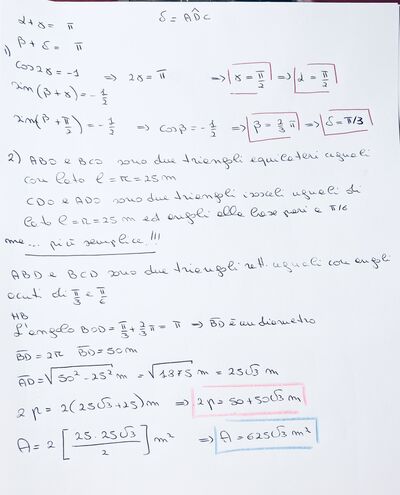 α+γ = π      δ = AD̂C
β + δ = π
1) cos2γ = -1 ⇒ 2γ = π ⇒ γ = π/2 ⇒ α = π/2
sin(β+γ) = -1/2
sin(β+π/2) = -1/2 ⇒ cosβ = -1/2 ⇒ β = 2/3 π ⇒ δ = π/3
2) ABO e BCO sono due triangoli equilateri uguali
con lato l = r = 25 m
CDO e ADO sono due triangoli isosceli uguali di
lato l = r = 25 m ed angoli alla base pari a π/6
ma... più semplice!!!
ABD e BCD sono due triangoli rett. uguali con angoli
acuti di π/3 e π/6
NB
L'angolo BOD = π/3 + 2/3 π = π ⇒ BD è un diametro
BD = 2r   BD = 50 m
AD = √50² - 25² m = √1875 m = 25√3 m
2p = 2(25√3+25) m ⇒ 2p = 50+50√3 m
A = 2 [25·25√3/2] m² ⇒ A = 625√3 m²